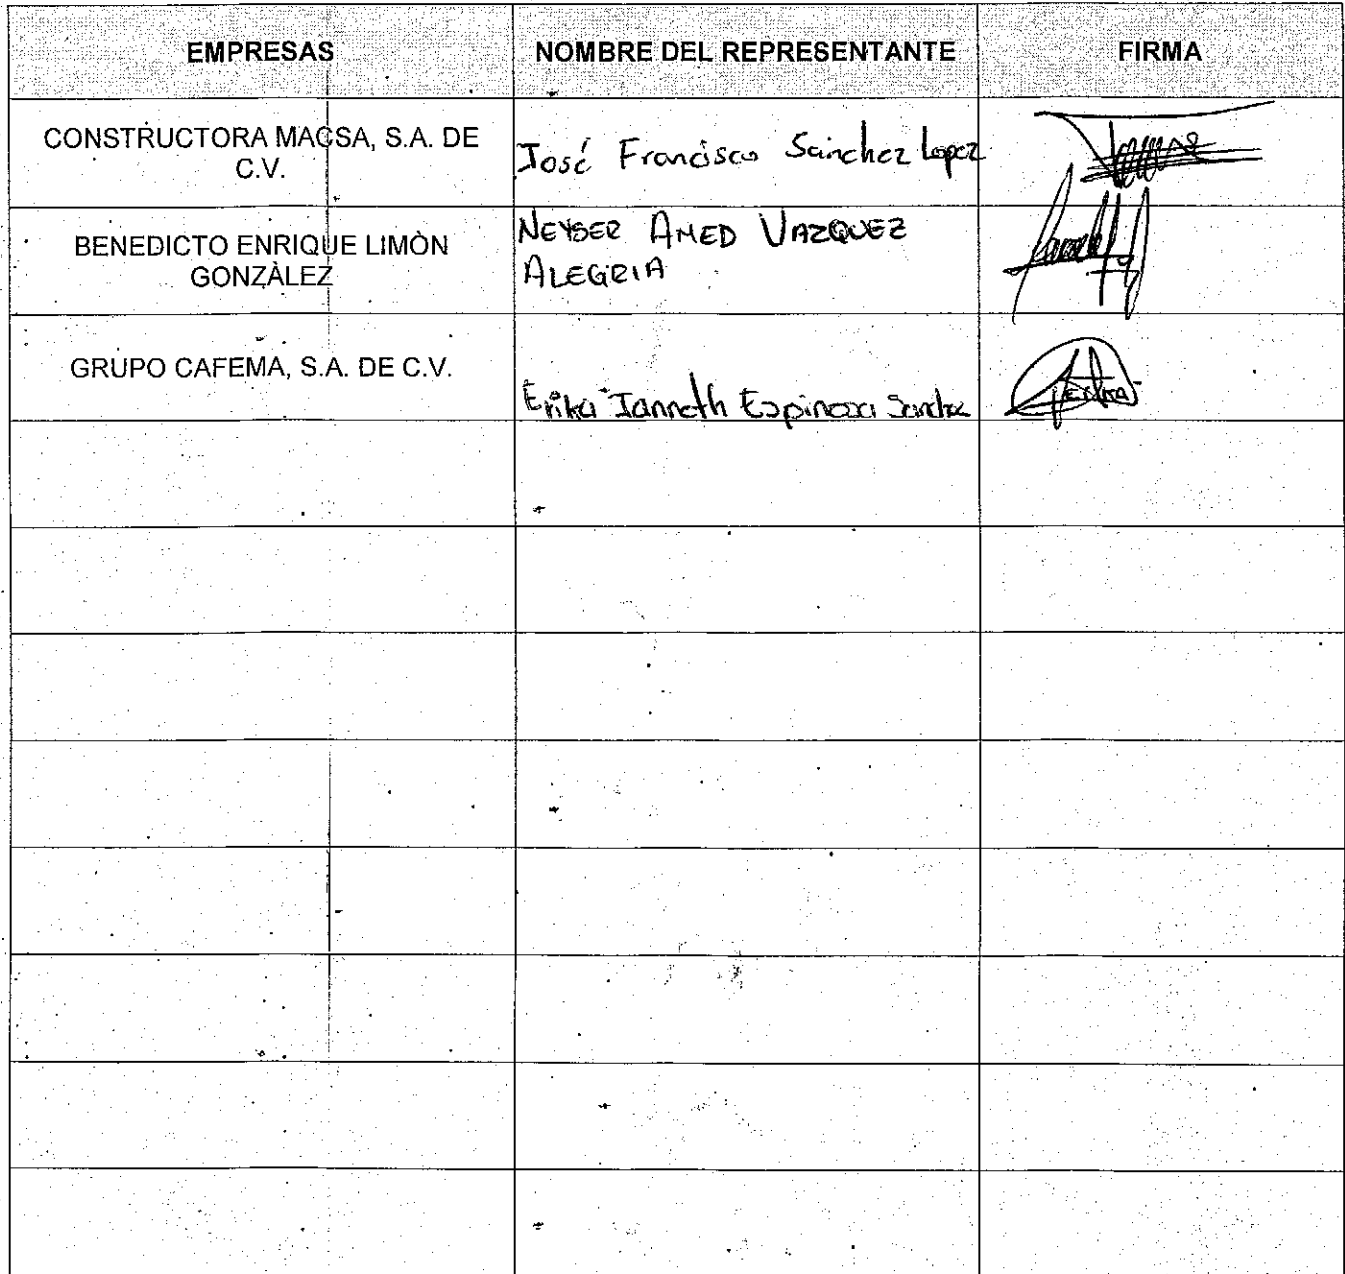 EMPRESAS NOMBRE DEL REPRESENTANTE FIRMA
CONSTRUCTORA MACSA, S.A. DE
C.V.
José Francisco Sánchez Lopez
BENEDICTO ENRIQUE LIMÒN
GONZÀLEZ
NEYSER AMED VAZQUEZ
ALEGRIA
GRUPO CAFEMA, S.A. DE C.V.
Erika Janneth Espinosa Sanchez